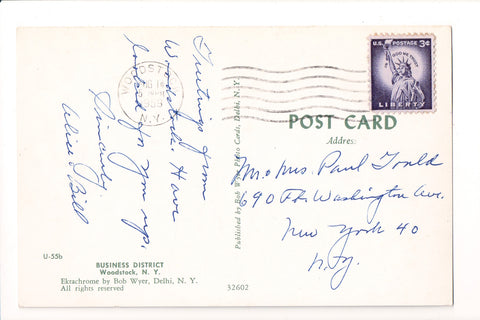 Greetings from
Woodstock. Have
looked for you up,
Sincerely
Alice & Bill
WOODSTOCK
N.Y.
U.S. POSTAGE 3¢
IN GOD WE TRUST
LIBERTY
POST CARD
Address:
Mr. & Mrs. Paul Gould
690 Ft. Washington Ave.
New York 40
N.Y.
Published by Bob Wyer Photo Cards, Delhi, N.Y.
U-55b
BUSINESS DISTRICT
Woodstock, N. Y.
Ektachrome by Bob Wyer, Delhi, N. Y.
All rights reserved
32602